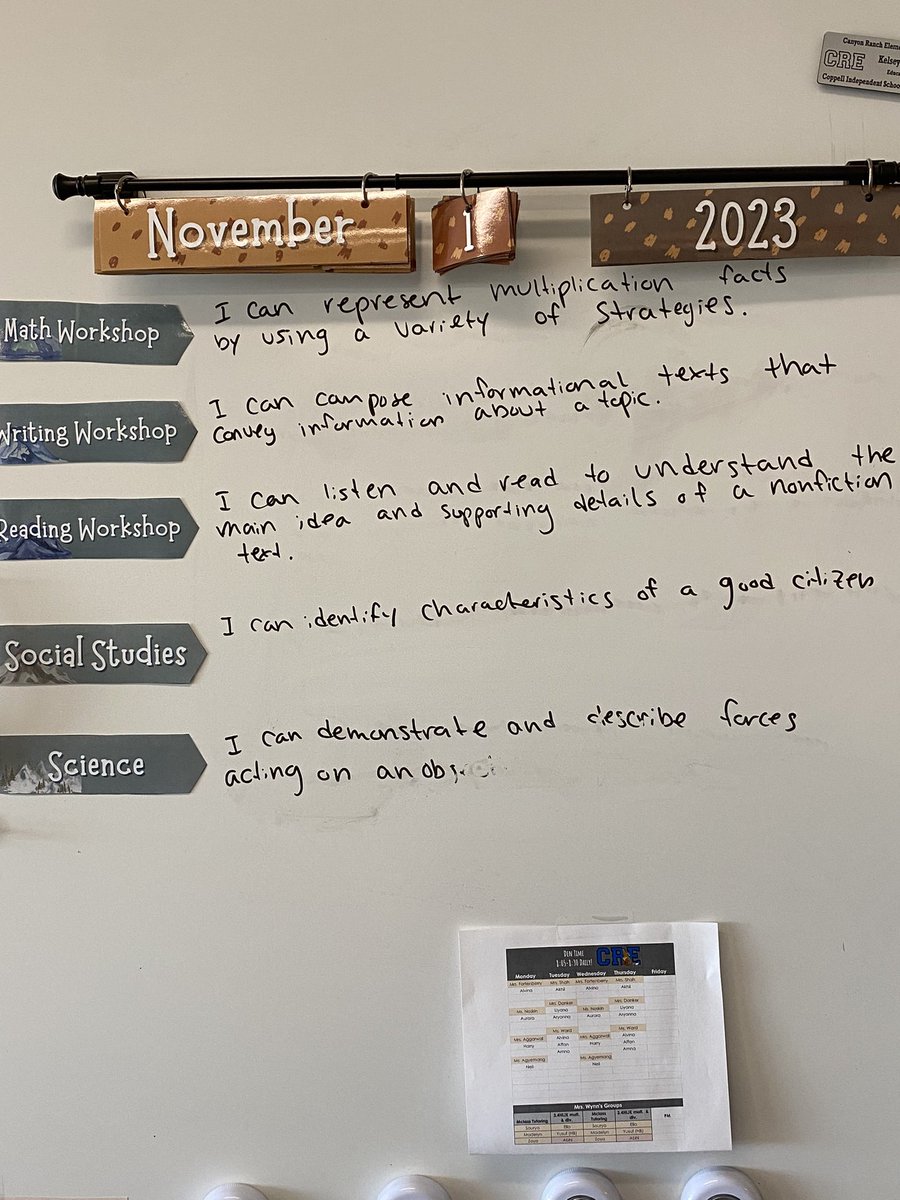 Canyon Ranch
CRE Kelsey
Coppell Independent
November 1 2023
Math Workshop
I can represent multiplication facts
by using a variety of strategies.
Writing Workshop
I can compose informational texts that
convey information about a topic.
Reading Workshop
I can listen and read to understand the
main idea and supporting details of a nonfiction
text.
Social Studies
I can identify characteristics of a good citizen
Science
I can demonstrate and describe forces
acting on an
DEN TIME CRE
DAILY!
Monday Tuesday Wednesday Thursday Friday
Mrs. Fortenberry Mrs. Shah Mrs. Fortenberry Mrs. Shah
Alvina Akhil Alvina Akhil
Mrs. Danker Mrs. Danker
Ms. Noskin Liyana Ms. Noskin Liyana
Aurora Aryanna Aurora Aryanna
Ms. Ward Ms. Ward
Mrs. Aggarwal Alvina Mrs. Aggarwal Alvina
Harry Affan Harry Affan
Amna Amna
Ms. Agyemang Ms. Agyemang
Neil Neil
Mrs. Wynn's Groups
Mclass Tutoring 3.4H/J/K mult. & div. Mclass Tutoring 3.4H/J/K mult. & div.
Sourya Ella Sourya Ella
Madelyn Yusuf Madelyn Yusuf
Zoya Zoya